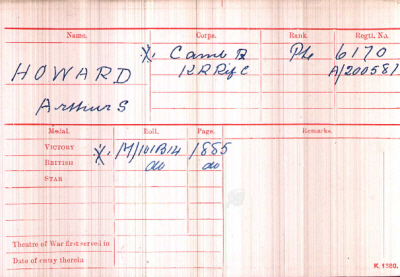 Name. Corps. Rank. Regtl. No.
X. Camb R Pte 6170
HOWARD K R Rif C A/200581
Arthur S
Medal. Roll. Page. Remarks.
VICTORY X. M/101B14 1885
BRITISH do do
STAR
Theatre of War first served in
Date of entry therein
K. 1380.